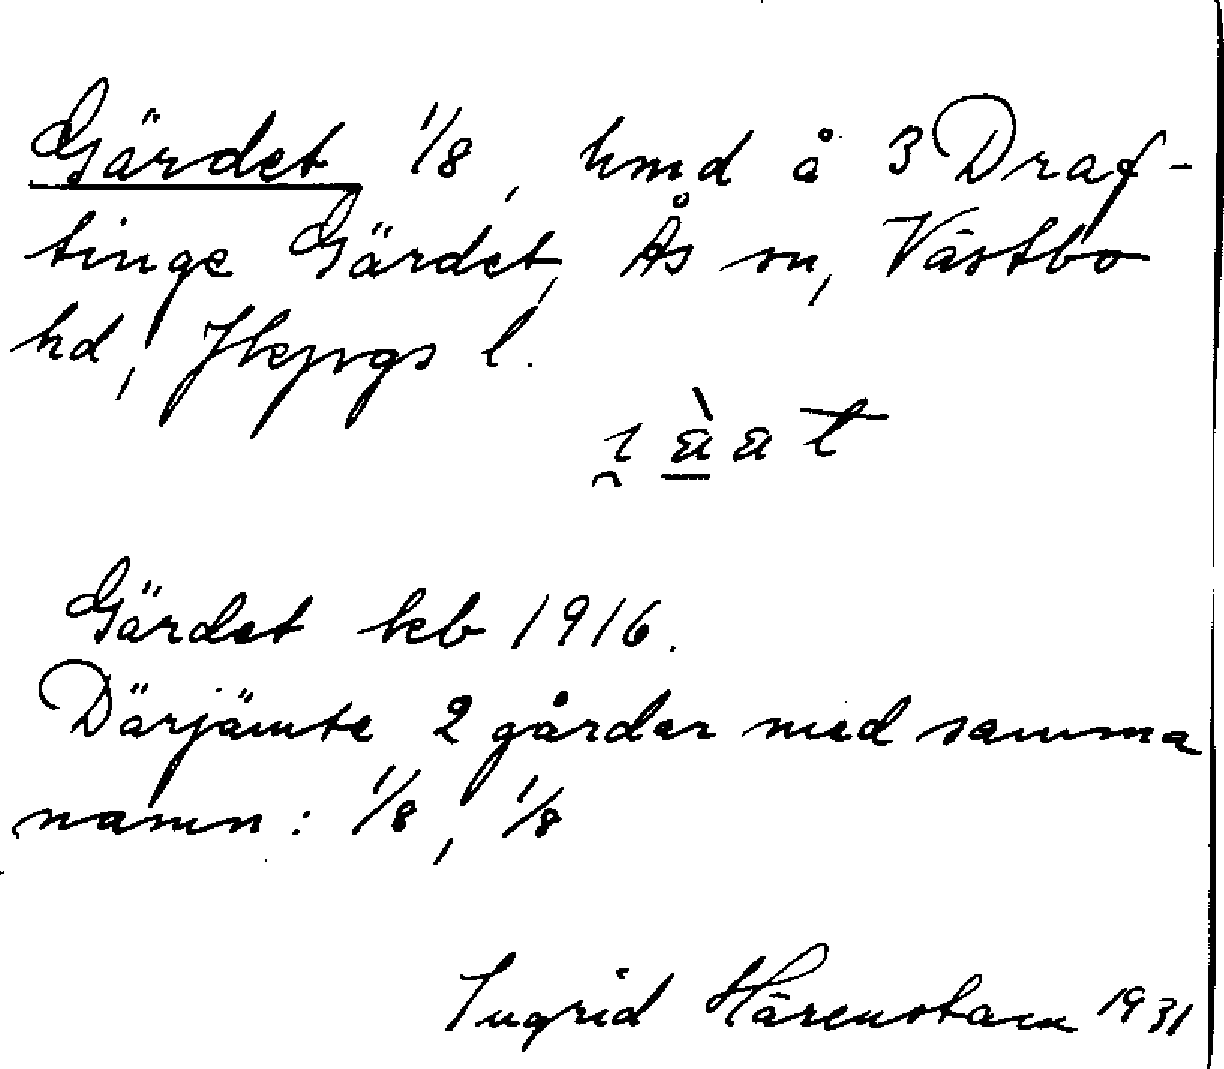 Gärdet 1/8, hmd å 3 Draf-
tinge Gärdet, Ås sn, Västbo
hd, Jkpgs l.
Gärdet keb 1916.
Därjämte 2 gårder med samma
namn: 1/8, 1/8
Ingrid Härenstam 1931